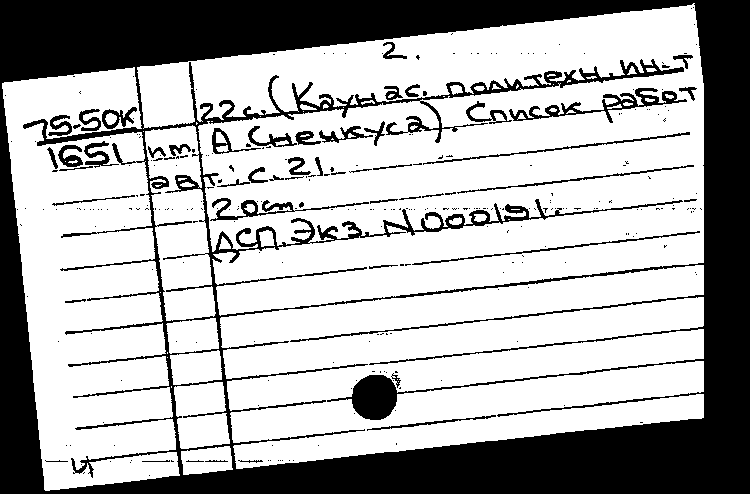 2.
75-50К 22с. (Каунас. политехн. ин-т
1651 им. А. Снечкуса). Список работ
авт.: с. 21.
20см.
ДСП. Экз. N 000191.